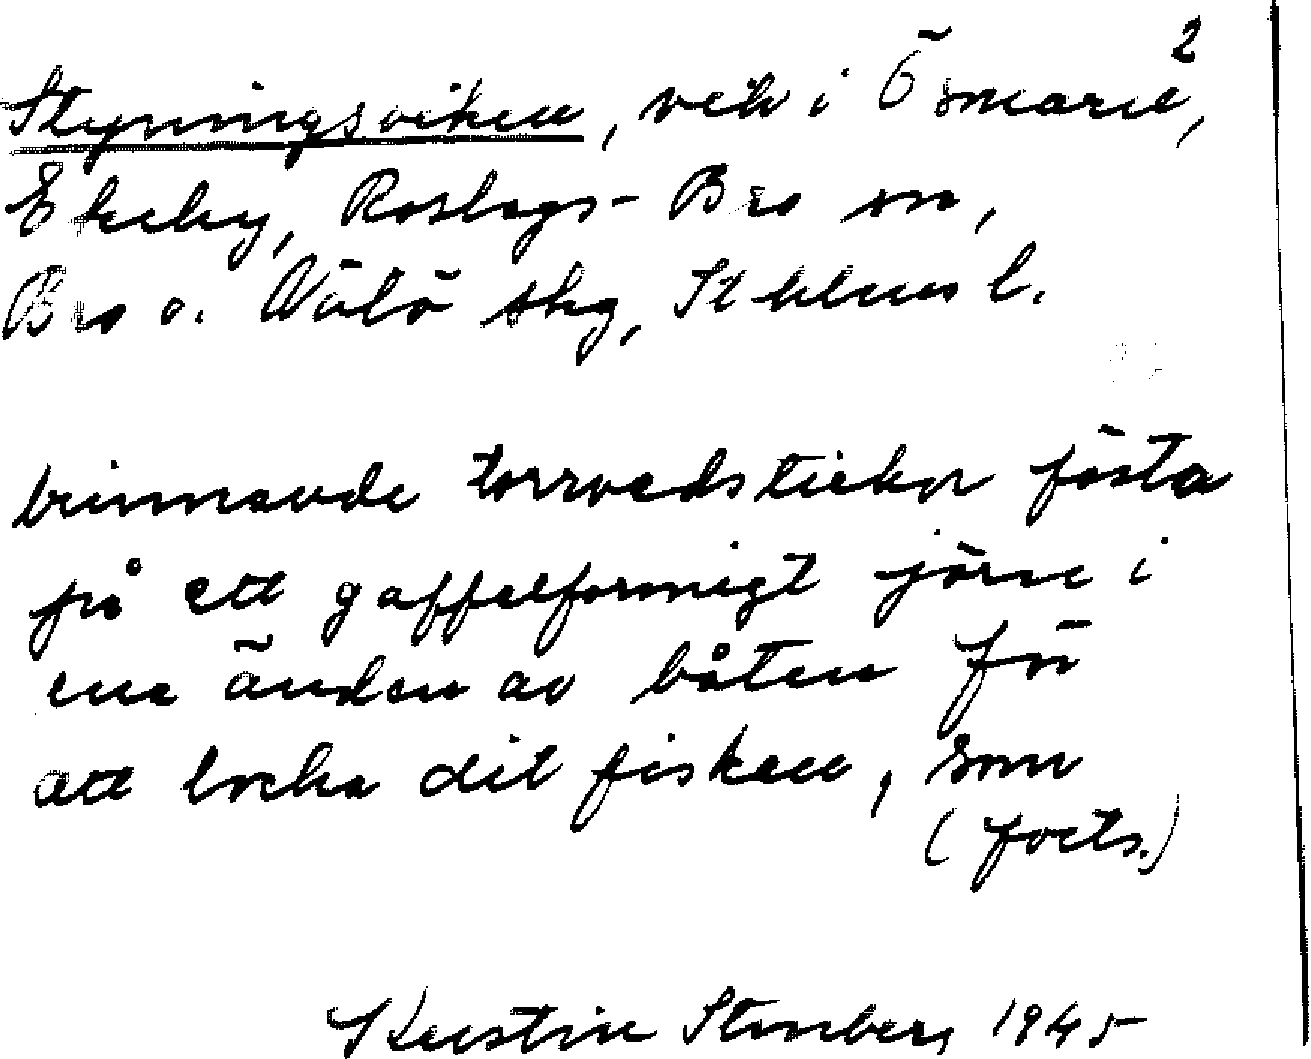 2
Styrningsviken, vik i Ösmaren,
Ekeby, Roslags-Bro sn,
Bro o. Vätö skg, Sthlms l.
brinnande torrvedstickor fästa
på ett gaffelformigt järn i
ena änden av båten för
att locka dit fisken, som
(forts.)
Kerstin Stenberg 1945